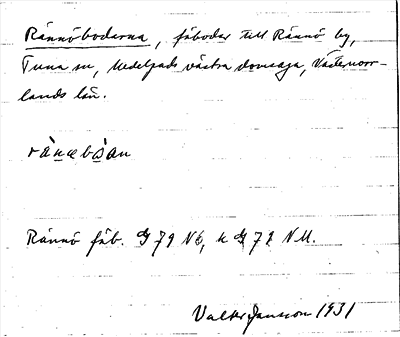 Rännöbodarna, fäbodar till Rännö by,
Tuna sn, Medelpads västra domsaga, Västernorr-
lands län.
Rännö fäb. G 79 Nb, u G 72 NU.
Valter Jansson 1931